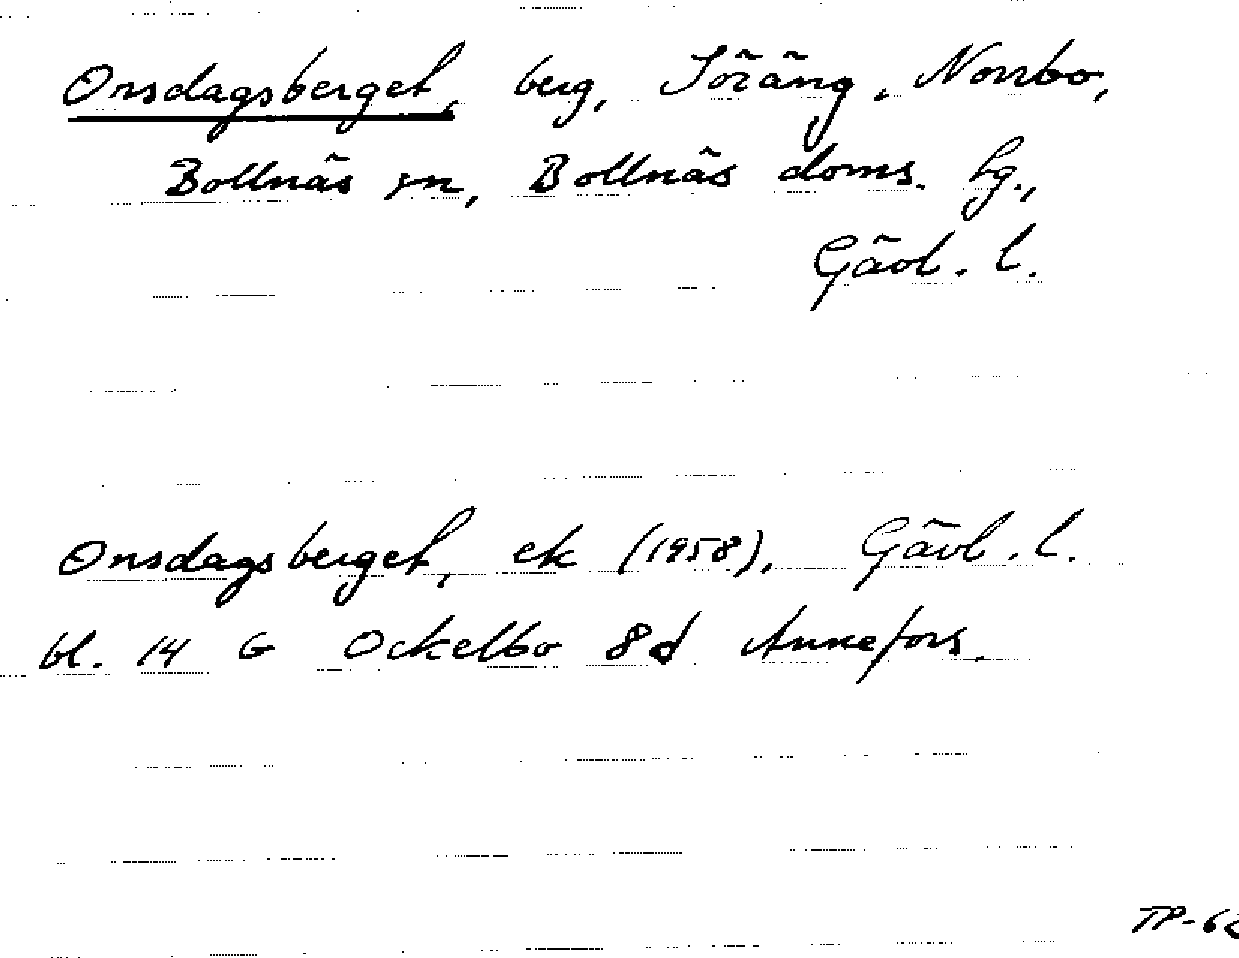 Onsdagsberget, berg, Söräng, Norrbo,
Bollnäs sn, Bollnäs doms. hg.,
Gävl. l.
Onsdagsberget, ek (1958), Gävl. l.
bl. 14 G Ockelbo 8d Annefors.
TP-62